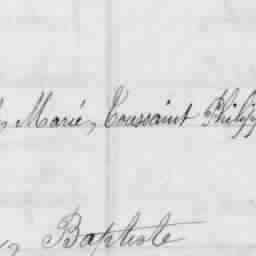 Marie, Toussaint Philip
Baptiste